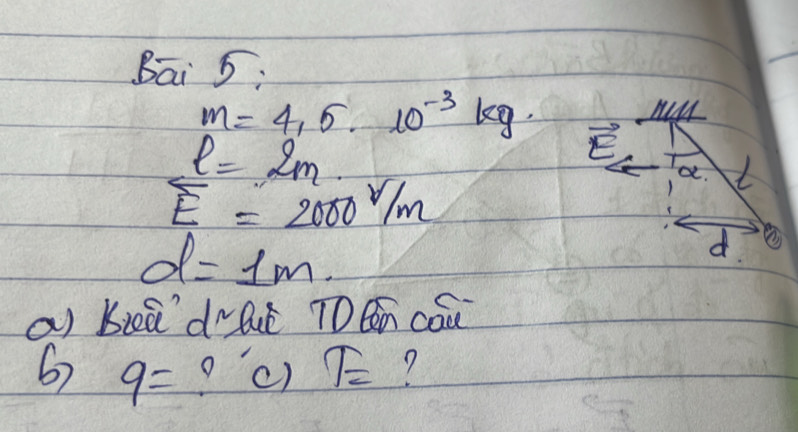 Bài 5:
m = 4,5. 10⁻³ kg.
l = 2m.
E⃖ = 2000 V/m
d = 1m.
a) d~ lực TD lên cầu
b) q = ? c) T = ?
E⃗
α
l
d